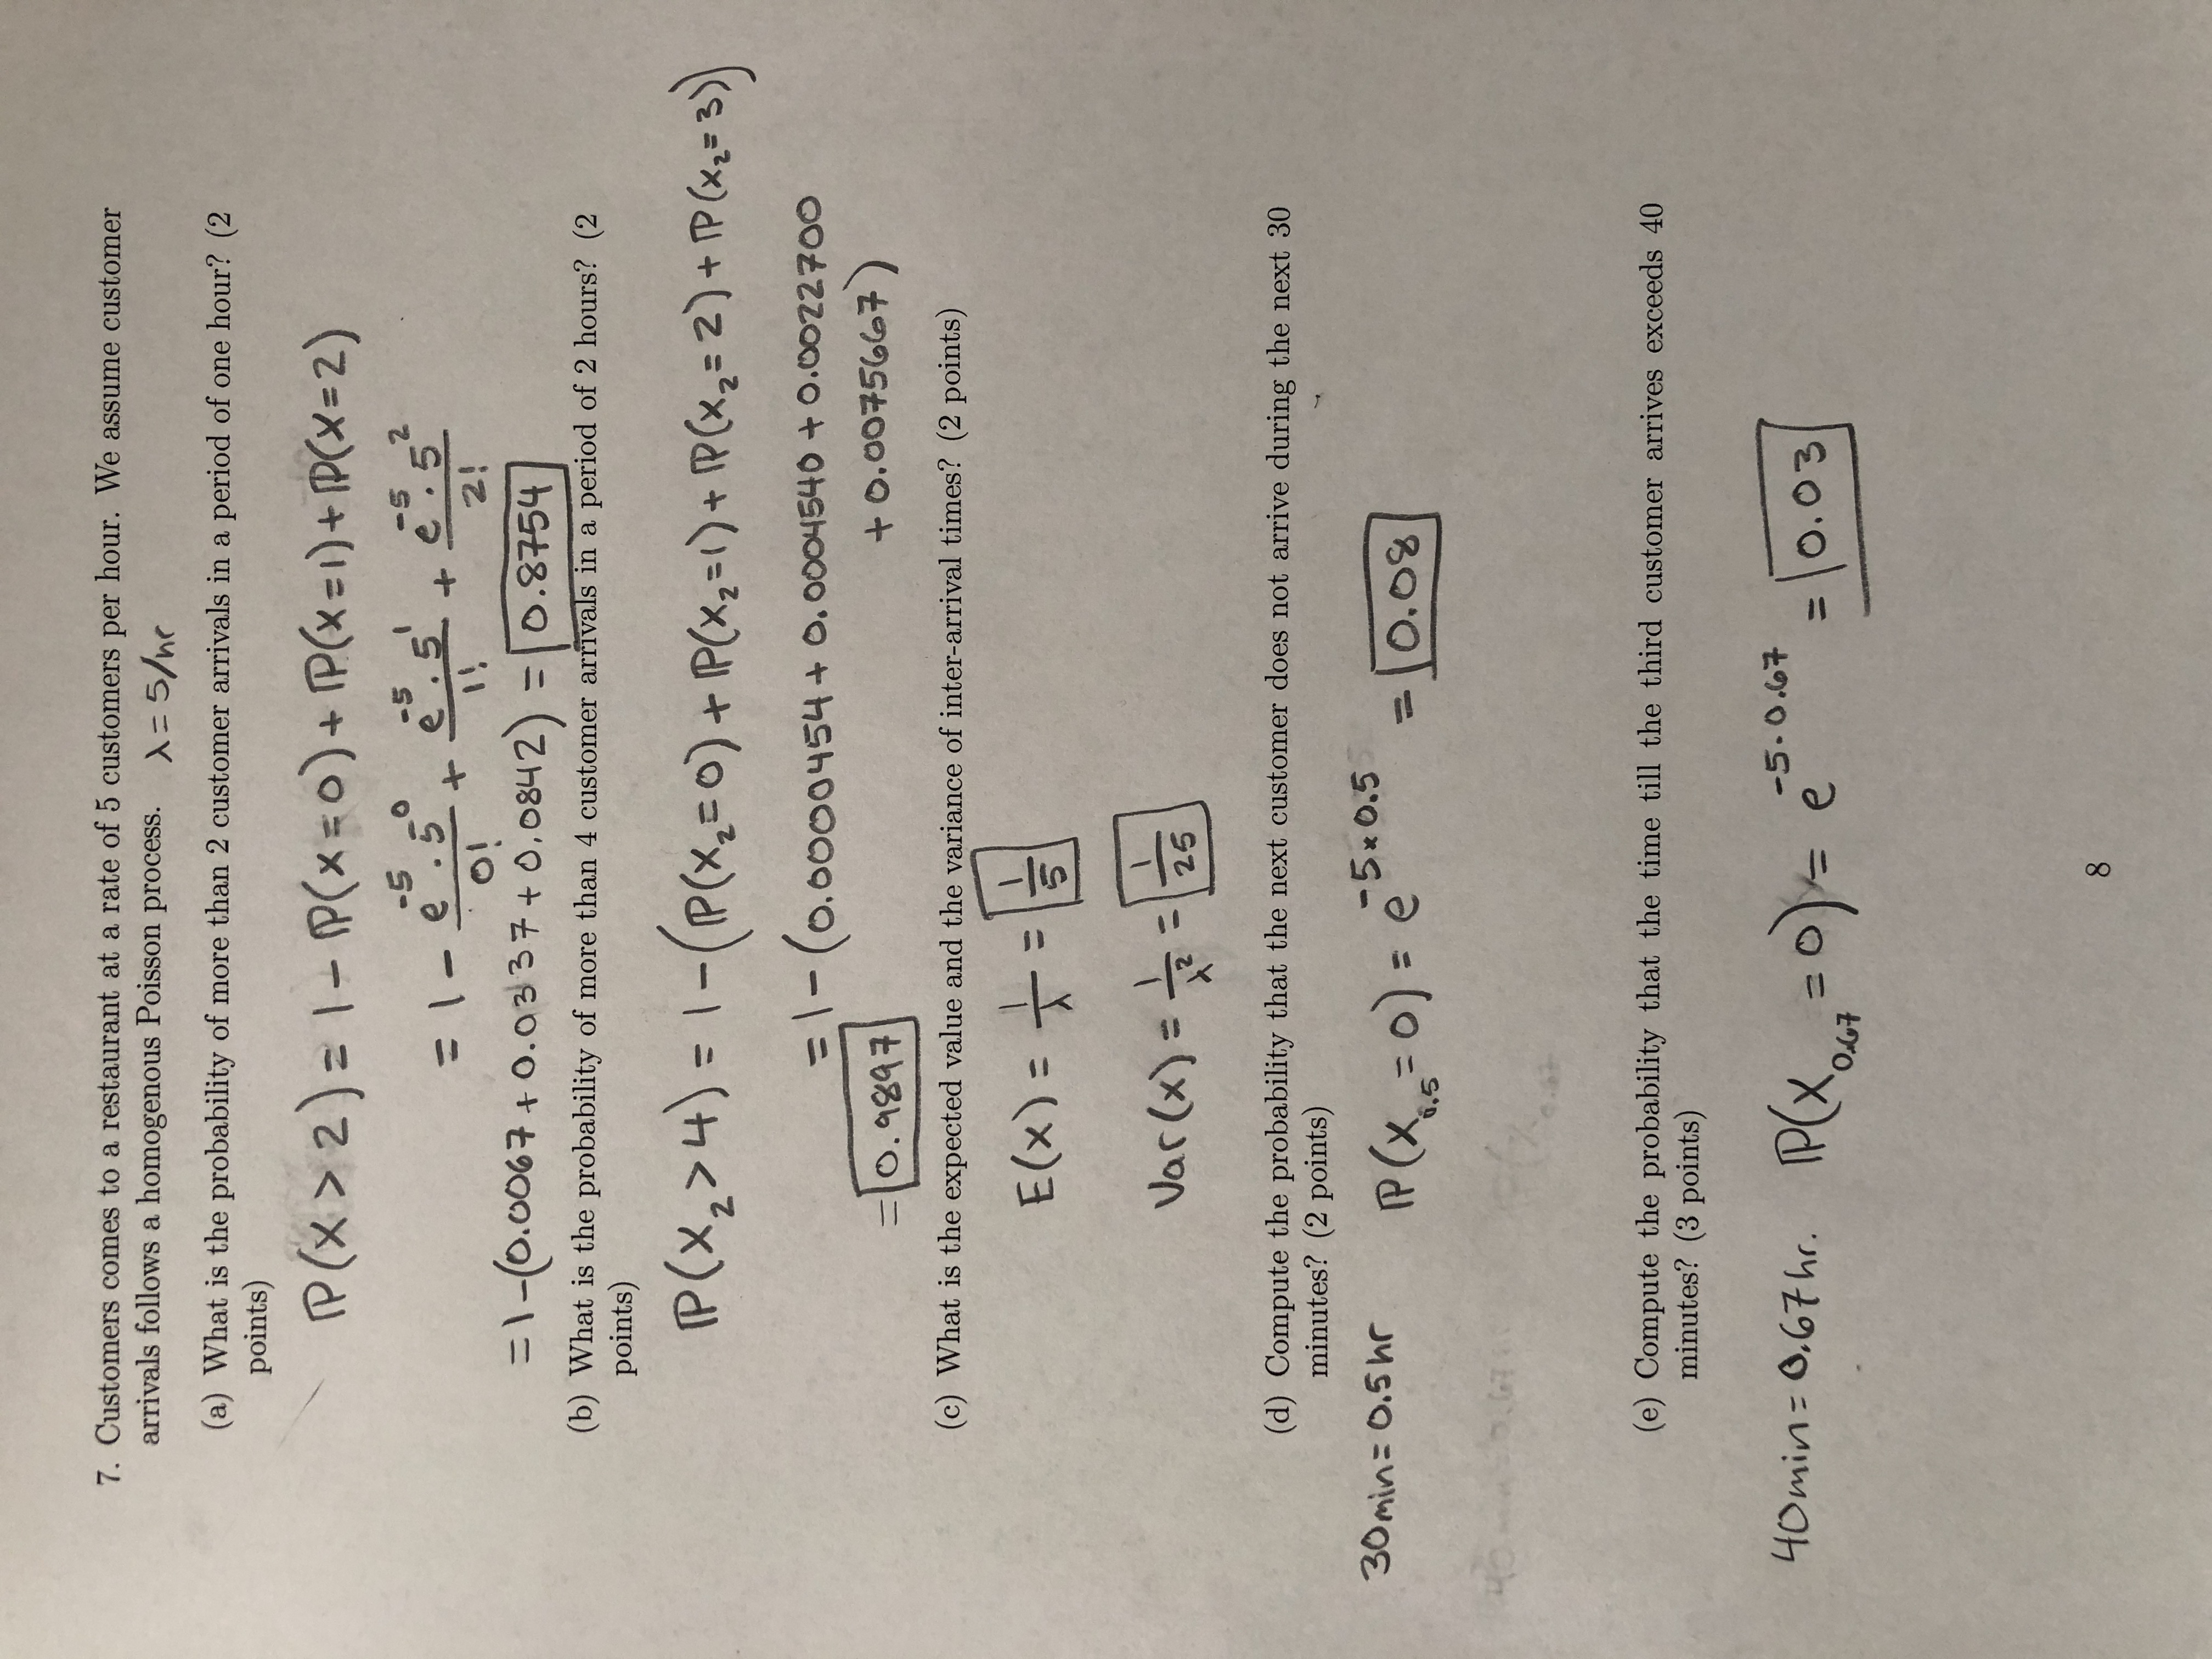 7. Customers comes to a restaurant at a rate of 5 customers per hour. We assume customer
arrivals follows a homogenous Poisson process. λ = 5/hr
(a) What is the probability of more than 2 customer arrivals in a period of one hour? (2
points)
ℙ(X > 2) = 1 - ℙ(X = 0) + ℙ(X = 1) + ℙ(X = 2)
= 1 - e^-5 · 5^0 / 0! + e^-5 · 5^1 / 1! + e^-5 · 5^2 / 2!
= 1 - (0.0067 + 0.0337 + 0.0842) = 0.8754
(b) What is the probability of more than 4 customer arrivals in a period of 2 hours? (2
points)
ℙ(X₂ > 4) = 1 - (ℙ(X₂ = 0) + ℙ(X₂ = 1) + ℙ(X₂ = 2) + ℙ(X₂ = 3))
= 1 - (0.0000454 + 0.0004540 + 0.0022700
+ 0.0075667)
= 0.9897
(c) What is the expected value and the variance of inter-arrival times? (2 points)
E(X) = 1/λ = 1/5
Var(X) = 1/λ² = 1/25
(d) Compute the probability that the next customer does not arrive during the next 30
minutes? (2 points)
30min = 0.5hr ℙ(X_0.5 = 0) = e^-5×0.5 = 0.08
(e) Compute the probability that the time till the third customer arrives exceeds 40
minutes? (3 points)
40min = 0.67hr. ℙ(X_0.67 = 0) = e^-5·0.67 = 0.03
8